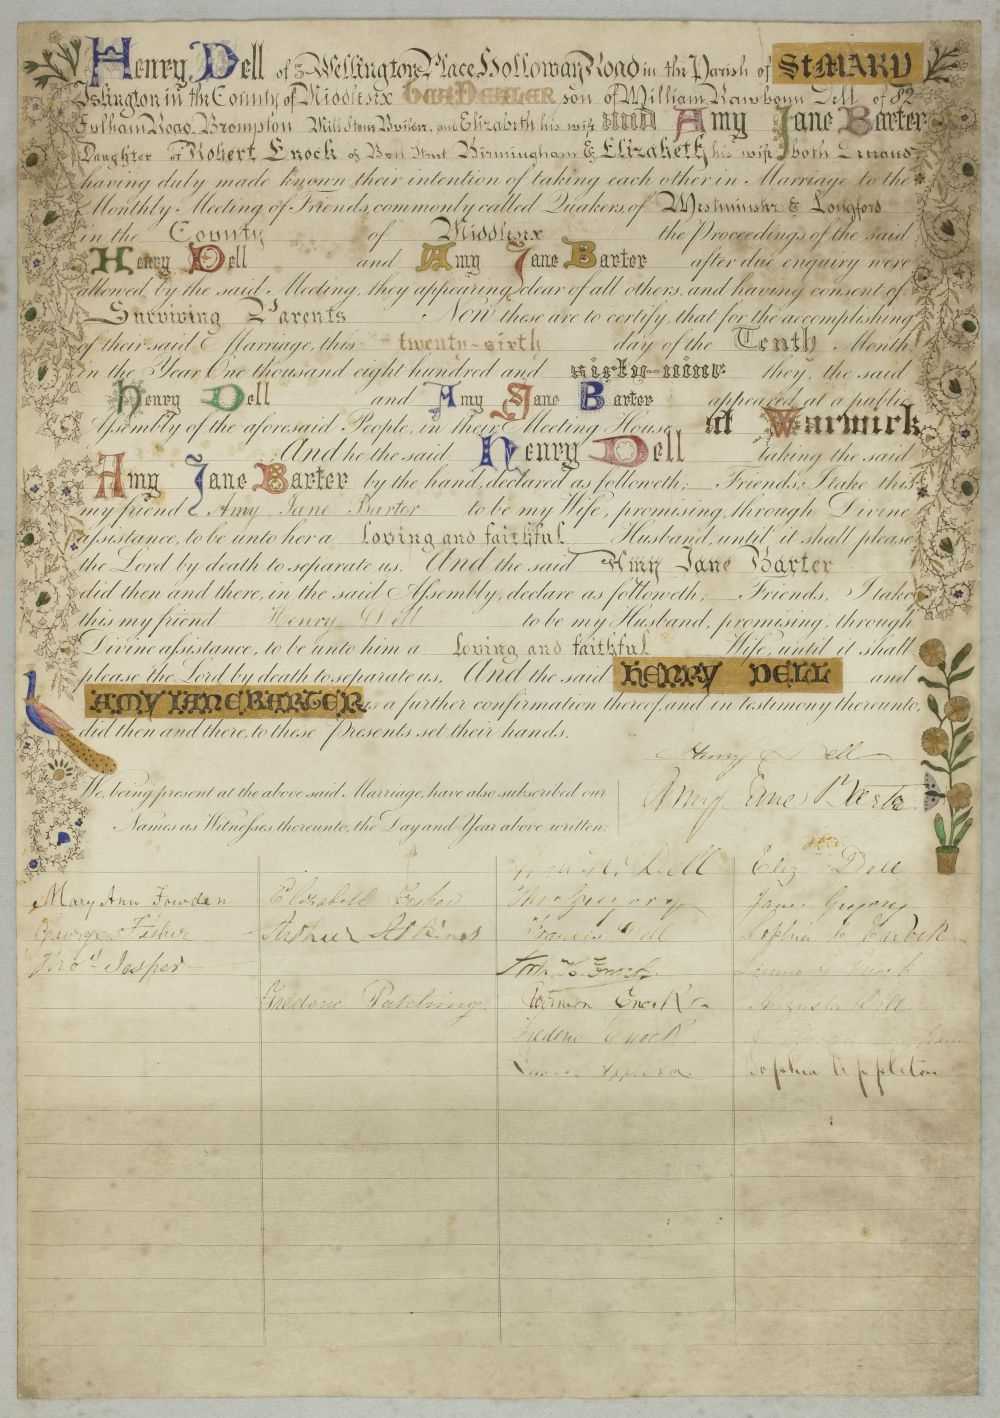 Henry Dell of 3 Wellington Place Holloway Road in the Parish of St MARY
Islington in the County of Middlesex Tea Dealer son of William Rawbonn Dell of 82
Fulham Road, Brompton Mill Stone Builder, and Elizabeth his wife and Amy Jane Barter
Daughter of Robert Enock of Birmingham & Elizabeth his wife both
having duly made known their intention of taking each other in Marriage to the
Monthly Meeting of Friends, commonly called Quakers, of Westminster & Longford
in the County of Middlesex the Proceedings of the said
Henry Dell and Amy Jane Barter after due enquiry were
allowed by the said Meeting, they appearing clear of all others, and having consent of
Surviving Parents Now these are to certify, that for the accomplishing
of their said Marriage, this twenty-sixth day of the Tenth Month
in the Year One thousand eight hundred and sixty-nine they, the said
Henry Dell and Amy Jane Barter appeared at a public
Assembly of the aforesaid People, in their Meeting House at Warwick
And he the said Henry Dell taking the said
Amy Jane Barter by the hand, declared as followeth; Friends, I take this
my friend Amy Jane Barter to be my Wife, promising, through Divine
assistance, to be unto her a loving and faithful Husband, until it shall please
the Lord by death to separate us. And the said Amy Jane Barter
did then and there, in the said Assembly, declare as followeth; Friends, I take
this my friend Henry Dell to be my Husband, promising, through
Divine assistance, to be unto him a loving and faithful Wife, until it shall
please the Lord by death to separate us. And the said HENRY DELL and
AMY JANE BARTER as a further confirmation thereof, and in testimony thereunto,
did then and there, to these Presents set their hands.
Henry Dell
Amy Jane Barter
We, being present at the above said Marriage, have also subscribed our
Names as Witnesses thereunto, the Day and Year above written:
Dell Eliz Dell
Mary Ann Fowden Elizabeth Thos Gregory Jane Gregory
George Fisher Arthur Atkins Francis Dell Sophia
Thos Jesper Enock
Frederic Patching Enock Augusta Dell
Frederic Enock
Sophia Appleton